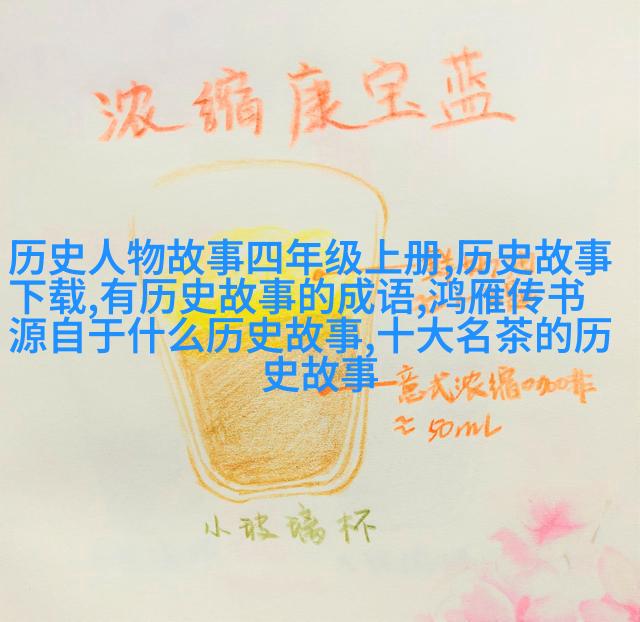 浓缩康宝蓝
历史人物故事四年级上册,历史故事
下载,有历史故事的成语,鸿雁传书
源自于什么历史故事,十大名茶的历
史故事
意式浓缩咖啡
≈50mL
小玻璃杯